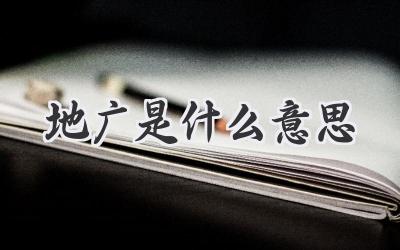 地广是什么意思